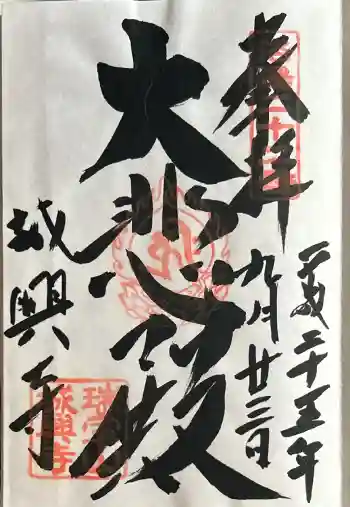 奉拝
平成二十五年
九月廿三日
大悲殿
城興寺
城興寺